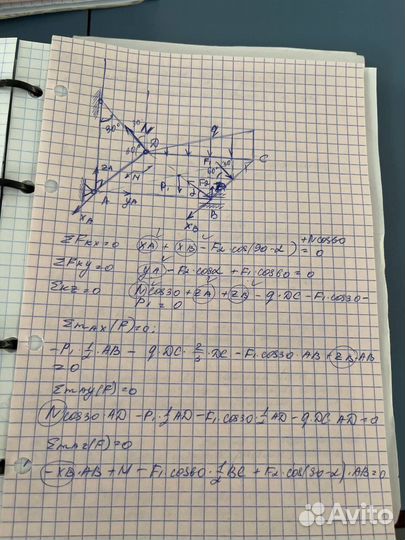 30°
N
60°
D
q
ZA
N
A
XA
YA
P₁
F₁
30°
60°
F₂
α
B
XB
C
ΣFкx=0 XA + XB - F₂·cos(90-α) + Ncos60 = 0
ΣFкy=0 YA - F₂·cosα + F₁·cos60 = 0
Σкz=0 Ncos30 + ZA + ZA - q·DC - F₁·cos30 -
P₁ = 0
Σmax(F)=0;
-P₁·½·AB - q·DC·⅔·DC - F₁·cos30·AB + ZB·AB
= 0
Σmay(F)=0
Ncos30·AD - P₁·½AD - F₁·cos30·½AD - q·DC·AD=0
Σmaz(F)=0
-XB·AB + M - F₁·cos60·½BC + F₂·cos(90-α)·AB=0
Avito